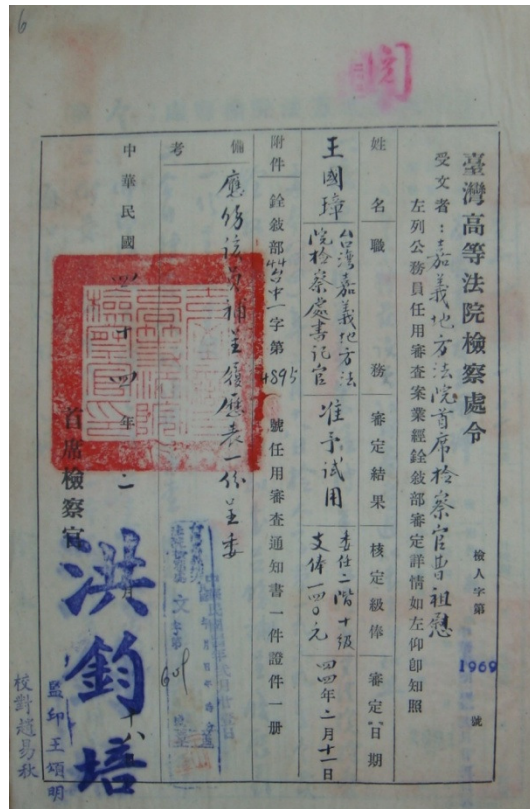 6
閱
臺灣高等法院檢察處令
檢人字第1969號
受文者：嘉義地方法院首席檢察官曹祖慰
左列公務員任用審查案業經銓敘部審定詳情如左仰卽知照
姓名
職務
審定結果
核定級俸
審定日期
王國璋
台灣嘉義地方法
院檢察處書記官
准予試用
委任二階十級
支俸一四〇元
四四年二月十一日
附件
銓敘部44台中一字第4895號任用審查通知書一件證件一册
備考
應飭該員補呈履歷表一份呈委
中華民國四十四年二月十八
首席檢察官
洪鈞培
監印王頌明
校對趙易秋